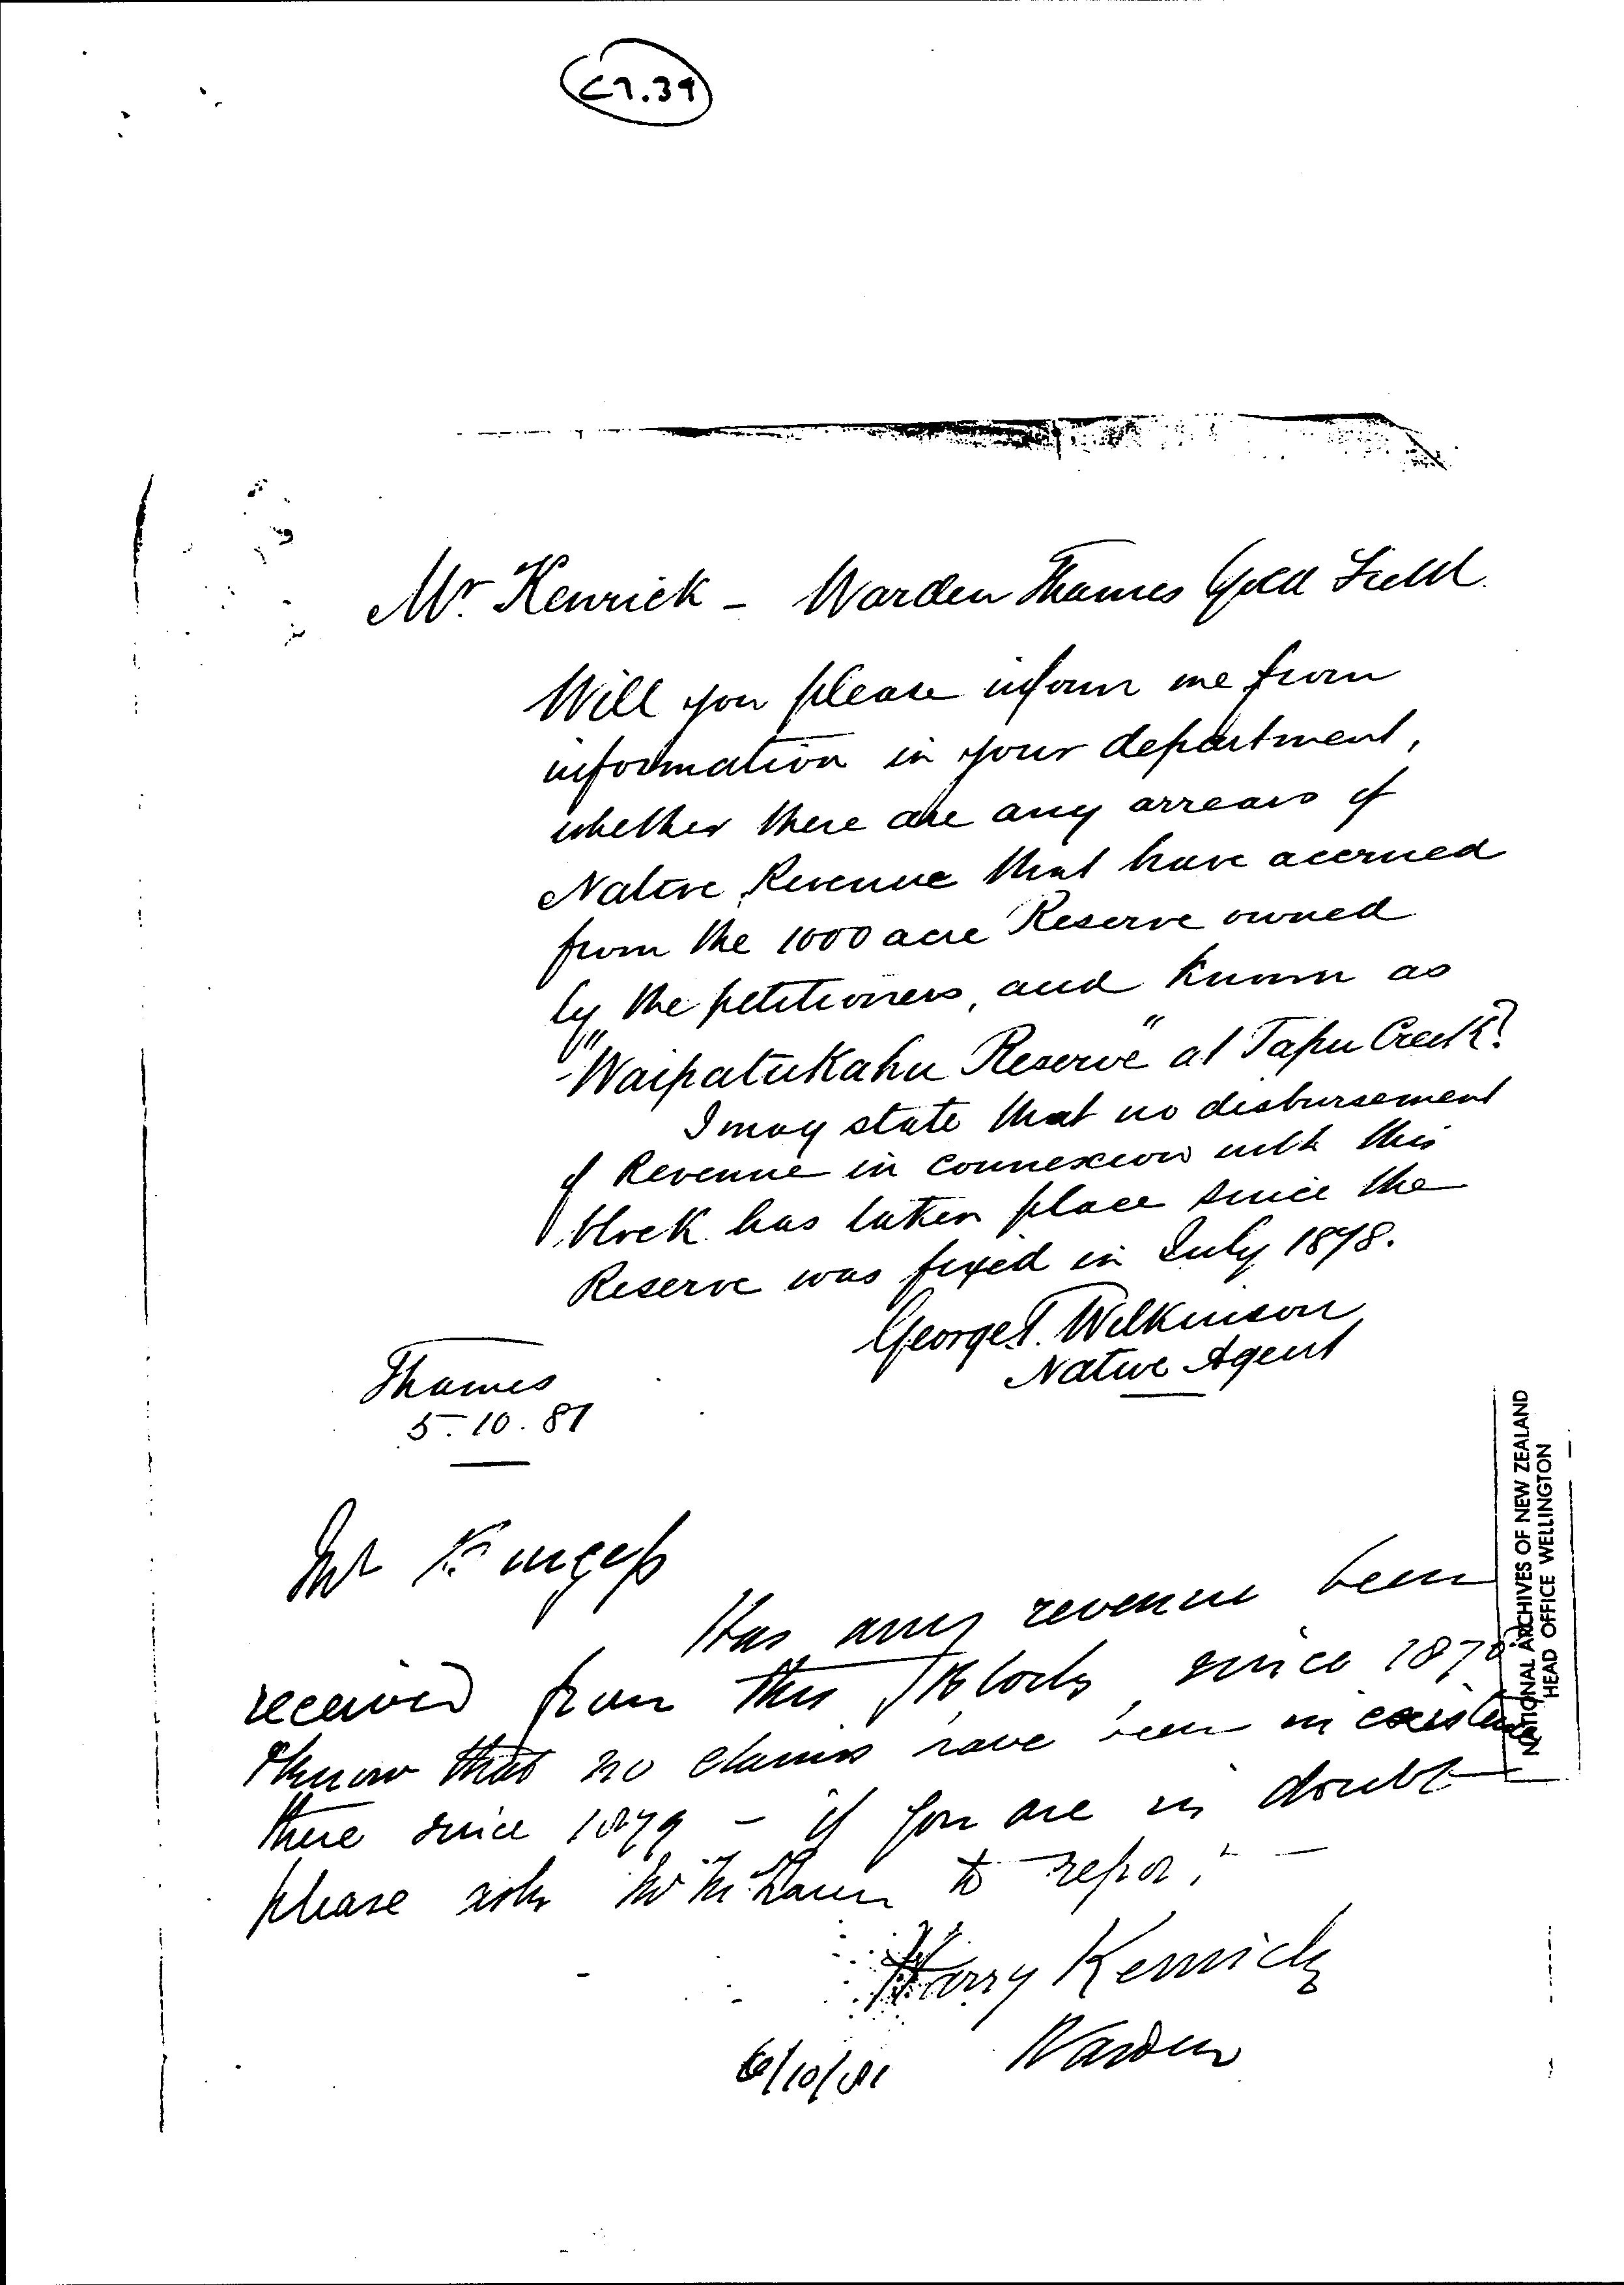 C7.39
Mr. Kenrick - Warden Thames Gold Field.
Will you please inform me from
information in your department,
whether there are any arrears of
Native Revenue that have accrued
from the 1000 acre Reserve owned
by the petitioners, and known as
"Waipatukahu Reserve" at Tapu Creek?
I may state that no disbursement
of Revenue in connexion with this
block has taken place since the
Reserve was fixed in July 1878.
George T. Wilkinson
Native Agent
Thames
5.10.81
Mr Burgess
Has any revenue been
received from this Block, since 1878
I know that no claims have been in existence
there since 1879 - if you are in doubt
please ask Mr to report -
Harry Kenrick
Warden
6/10/81
NATIONAL ARCHIVES OF NEW ZEALAND
HEAD OFFICE WELLINGTON